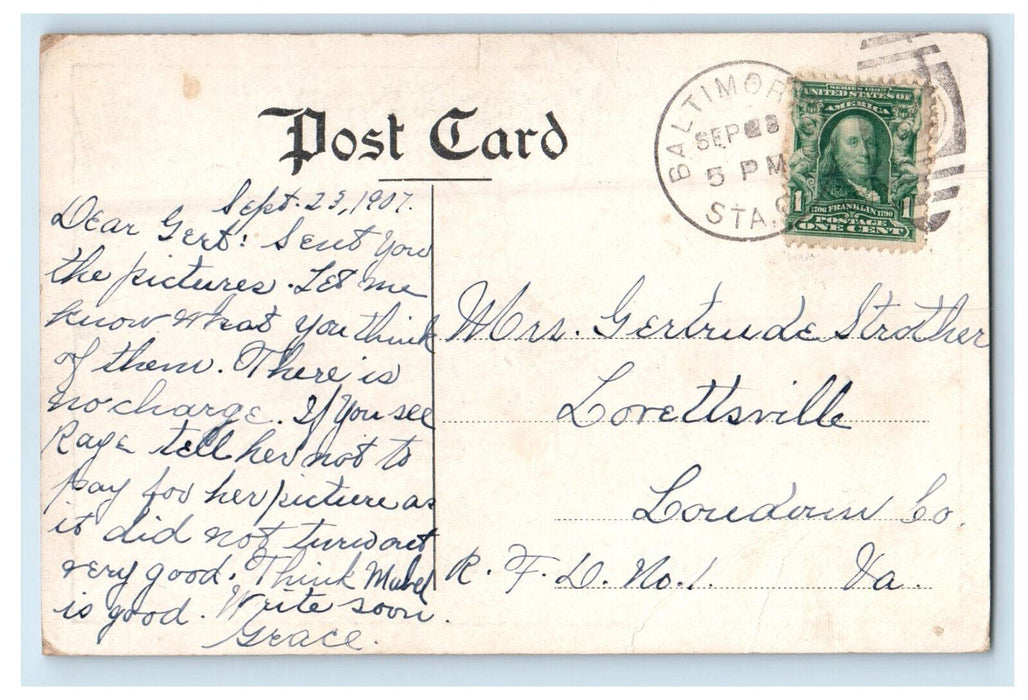 Post Card
BALTIMOR
SEP 28
5 PM
STA.
SERIES 1902
UNITED STATES OF
AMERICA
1 1706 FRANKLIN 1790 1
POSTAGE
ONE CENT
Sept. 23, 1907.
Dear Gert: Sent you
the pictures. Let me
know what you think
of them. There is
no charge. If you see
Kaye tell her not to
pay for her picture as
it did not turn out
very good. Think Mabel
is good. Write soon.
Grace.
Mrs. Gertrude Strother
Lovettsville
Loudoun Co.
R. F. D. No. 1. Va.